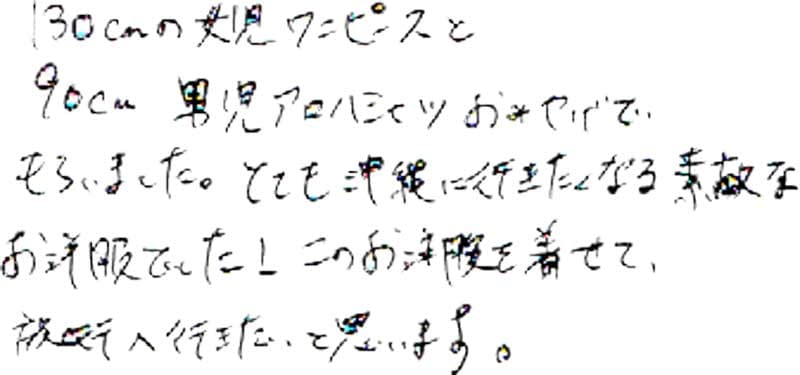 130cmの女児ワンピースと
90cm 男児アロハシャツ おみやげで
もらいました。とても沖縄に行きたくなる素敵な
お洋服でした! このお洋服を着せて、
旅行へ行きたいと思います。